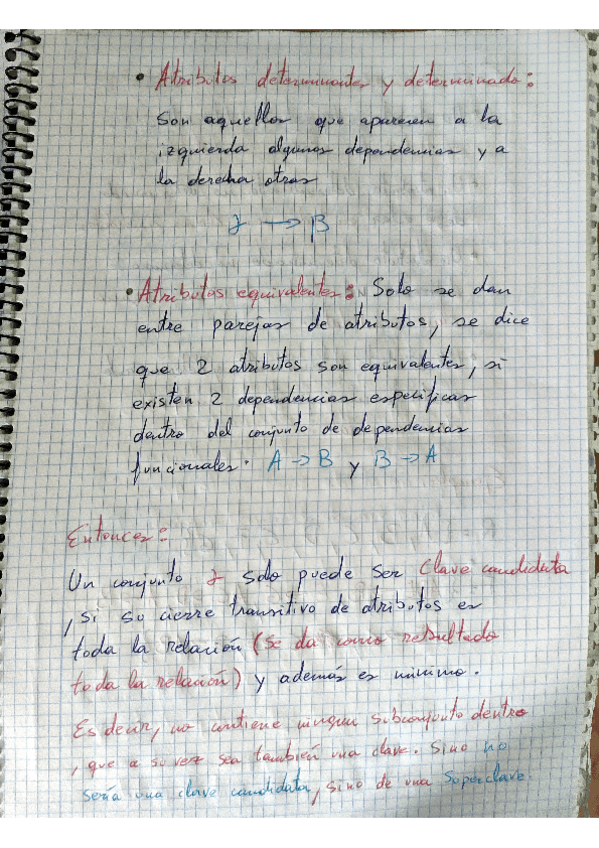 • Atributos determinantes y determinado:
Son aquellos que aparecen a la
izquierda algunos dependencias y a
la derecha otras
γ → β
• Atributos equivalentes: Solo se dan
entre parejas de atributos, se dice
que 2 atributos son equivalentes, si
existen 2 dependencias especificas
dentro del conjunto de dependencias
funcionales. A → B y B → A
Entonces:
Un conjunto γ solo puede ser clave candidata
, si su cierre transitivo de atributos es
toda la relación (se da como resultado
toda la relación) y además es mínimo.
Es decir, no contiene ningun subconjunto dentro
, que a su vez sea también una clave. Sino no
sería una clave candidata, sino de una Superclave.